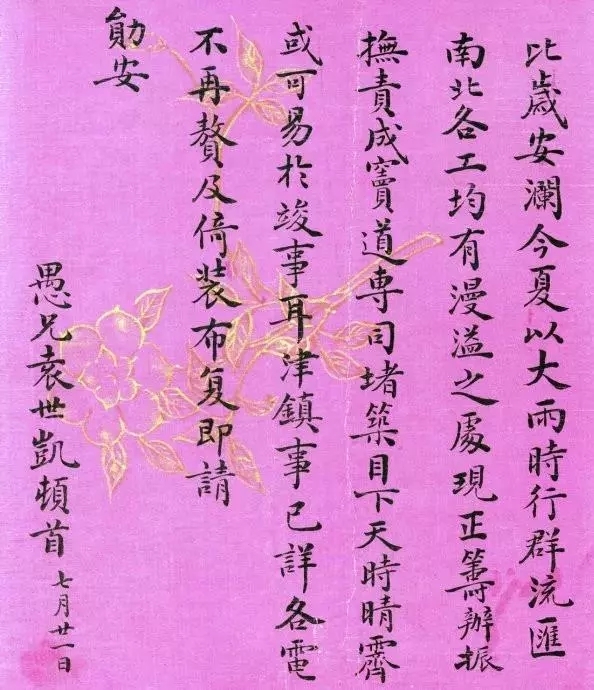 比歲安瀾今夏以大雨時行群流滙
南北各工均有漫溢之處現正籌辦振
撫責成竇道專司堵築目下天時晴霽
或可易於竣事耳津鎮事已詳各電
不再贅及倚裝布复即請
勛安
愚兄袁世凱頓首 七月廿一日